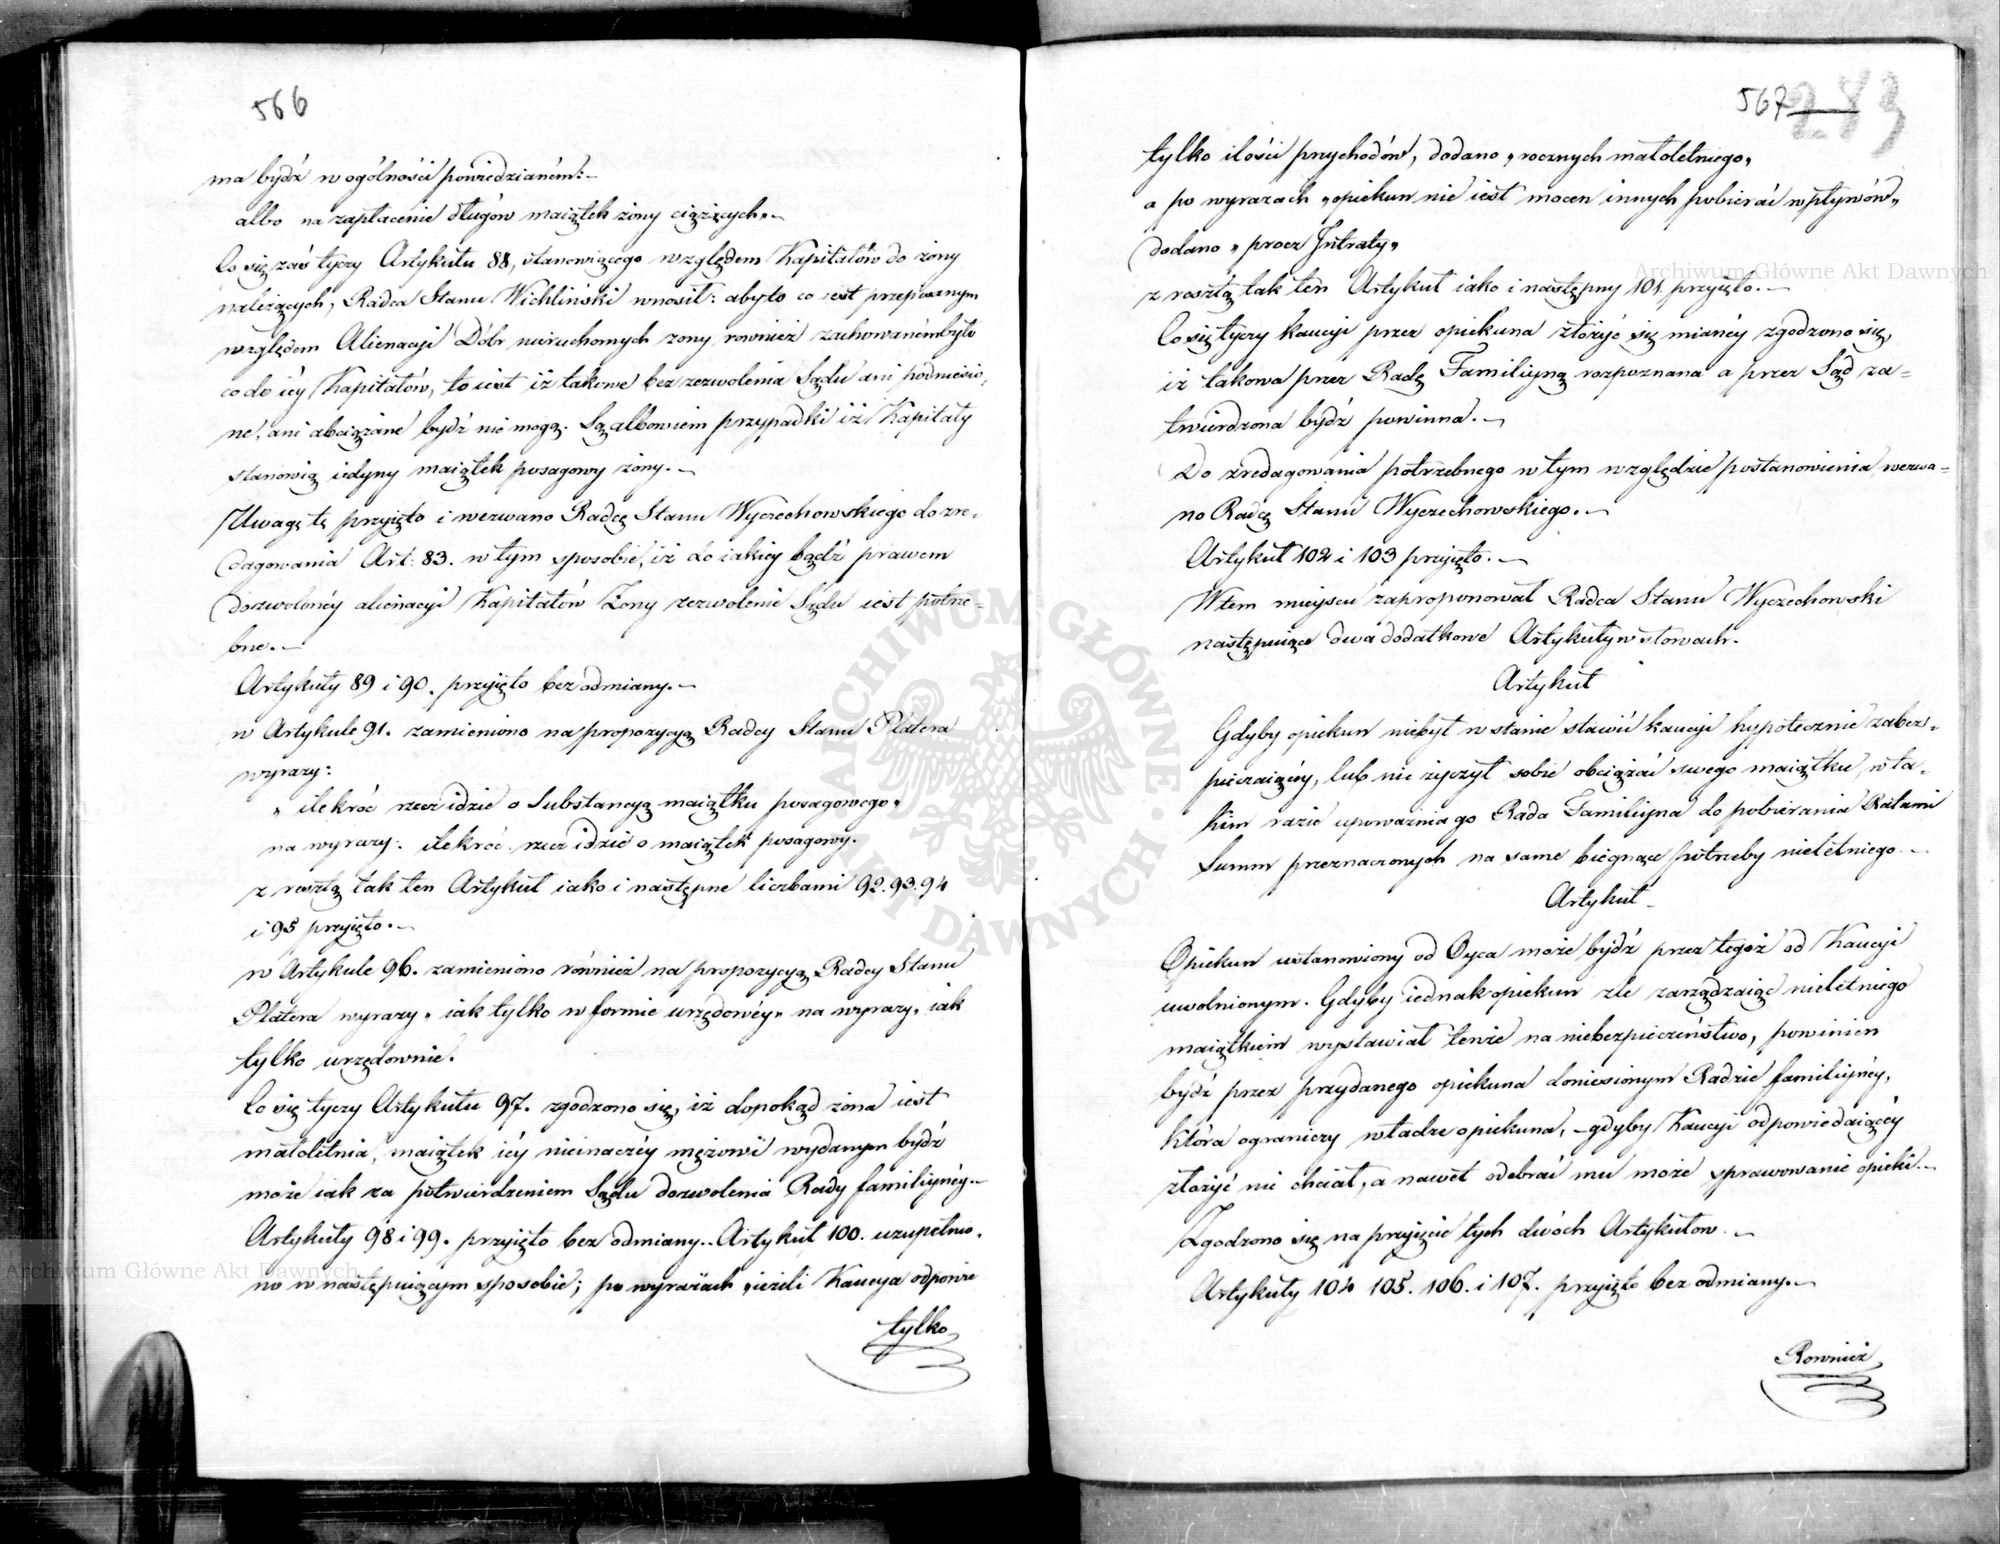 566
ma bydź w ogólności powiedzianém:—
albo na zapłacenie długów maiątek żony ciążących„—
Co się zaś tyczy Artykułu 88, stanowiącego względem Kapitałów do żony
należących, Radca Stanu Wichliński wnosił: aby to co iest przepisanym
względem Alienacyi Dóbr nieruchomych żony również zachowaném było
co do iéy Kapitałów, to iest iż takowe bez zezwolenia Sądu ani podniesio-
ne, ani obciążane bydź nie mogą. Są albowiem przypadki iż Kapitały
stanowią iedyny maiątek posagowy żony.—
Uwagę tę przyięto i wezwano Radcę Stanu Wyczechowskiego do zre-
dagowania Art: 83. w tym sposobie, iż do iakiey bądź prawem
dozwolonéy alienacyi Kapitałów Żony zezwolenie Sądu iest potrze-
bne.—
Artykuły 89 i 90. przyięto bez odmiany.—
w Artykule 91. zamieniono na propozycyą Radcy Stanu Platera
wyrazy:
„ ilekróc rzecz idzie o Substancyą maiątku posagowego„
na wyrazy: ilekróć rzecz idzie o maiątek posagowy.
z resztą tak ten Artykuł iako i następne liczbami 92. 93. 94
i 95 przyięto.—
w Artykule 96. zamieniono również na propozycyą Radcy Stanu
Platera wyrazy „ iak tylko w formie urzędowéy„ na wyrazy „ iak
tylko urzędownie.
Co się tyczy Artykułu 97. zgodzono się, iż dopokąd żona iest
małoletnia, maiątek iéy nieinaczéy mężowi wydanym bydź
może iak za potwierdzeniem Sądu dozwolenia Rady familiynéy.—
Artykuły 98 i 99. przyięto bez odmiany.. Artykuł 100. uzupełnio-
no w następuiącym sposobie; po wyrazach „ieżeli Kaucya odpowie
tylko
567 283
tylko ilości przychodów, dodano „rocznych małoletniego„
a po wyrazach „opiekun nie iest mocen innych pobierać wpływów„
dodano „ procz Intraty„
z resztą tak ten Artykuł iako i następny 101. przyięto.—
Co się tyczy kaucyi przez opiekuna złożyć się mianéy zgodzono się,
iż takowa przez Radę Familiyną rozpoznana a przez Sąd za-
twierdzona bydź powinna.—
Do zredagowania potrzebnego w tym względzie postanowienia wezwa-
no Radcę Stanu Wyczechowskiego.—
Artykuł 102 i 103 przyięto.—
W tem mieyscu zaproponował Radca Stanu Wyczechowski
następuiące dwa dodatkowe Artykuły w słowach.
Artykuł
Gdyby opiekun niebył w stanie stawić kaucyi hypotecznie zabez-
pieczaiącéy, lub nie życzył sobie obciążać swego maiątku, w ta-
kim razie upoważnia go Rada Familiyna do pobierania Ratami
Summ przeznaczonych na same biegnące potrzeby nieletniego.—
Artykuł
Opiekun ustanowiony od Oyca może bydź przez tegoż od Kaucyi
uwolnionym. Gdyby iednak opiekun zle zarządzaiąc nieletniego
maiątkiem wystawiał tenże na niebezpieczeństwo, powinien
bydź przez przydanego opiekuna doniesionym Radzie familiynéy,
która ograniczy władze opiekuna, —gdyby Kaucyi odpowiedaiącéy
złożyć nie chciał, a nawet odebrać mu może sprawowanie opieki.—
Zgodzono się na przyięcie tych dwóch Artykułow.—
Artykuły 104 105. 106. i 107. przyięto bez odmiany.—
Rownież
Archiwum Główne Akt Dawnych
Archiwum Główne Akt Dawnych
ARCHIWUM GŁÓWNE AKT DAWNYCH